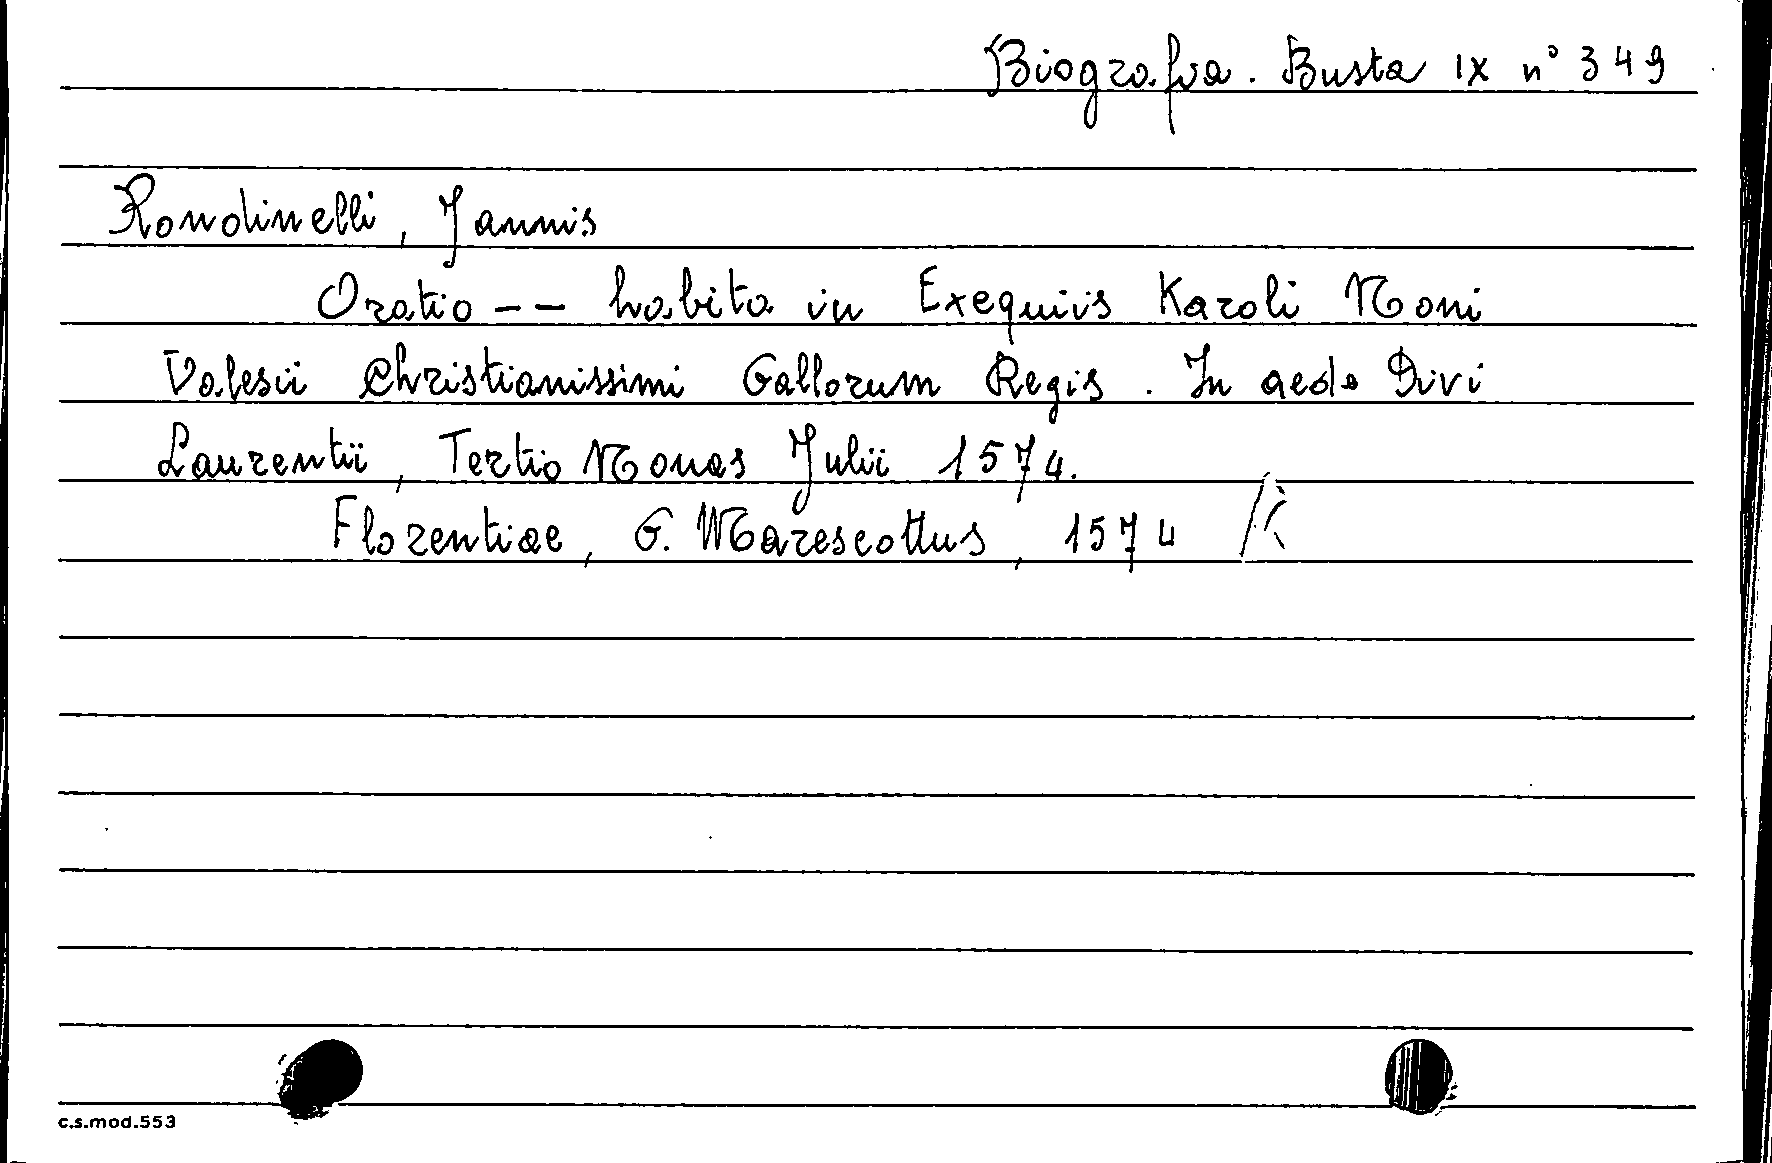 Biografia. Busta IX n° 349
Rondinelli, Jannis
Oratio -- habita in Exequiis Karoli Noni
Valesii Christianissimi Gallorum Regis. In aede Divi
Laurentii, Tertio Nonas Julii 1574.
Florentiae, G. Marescottus, 1574
c.s.mod.553